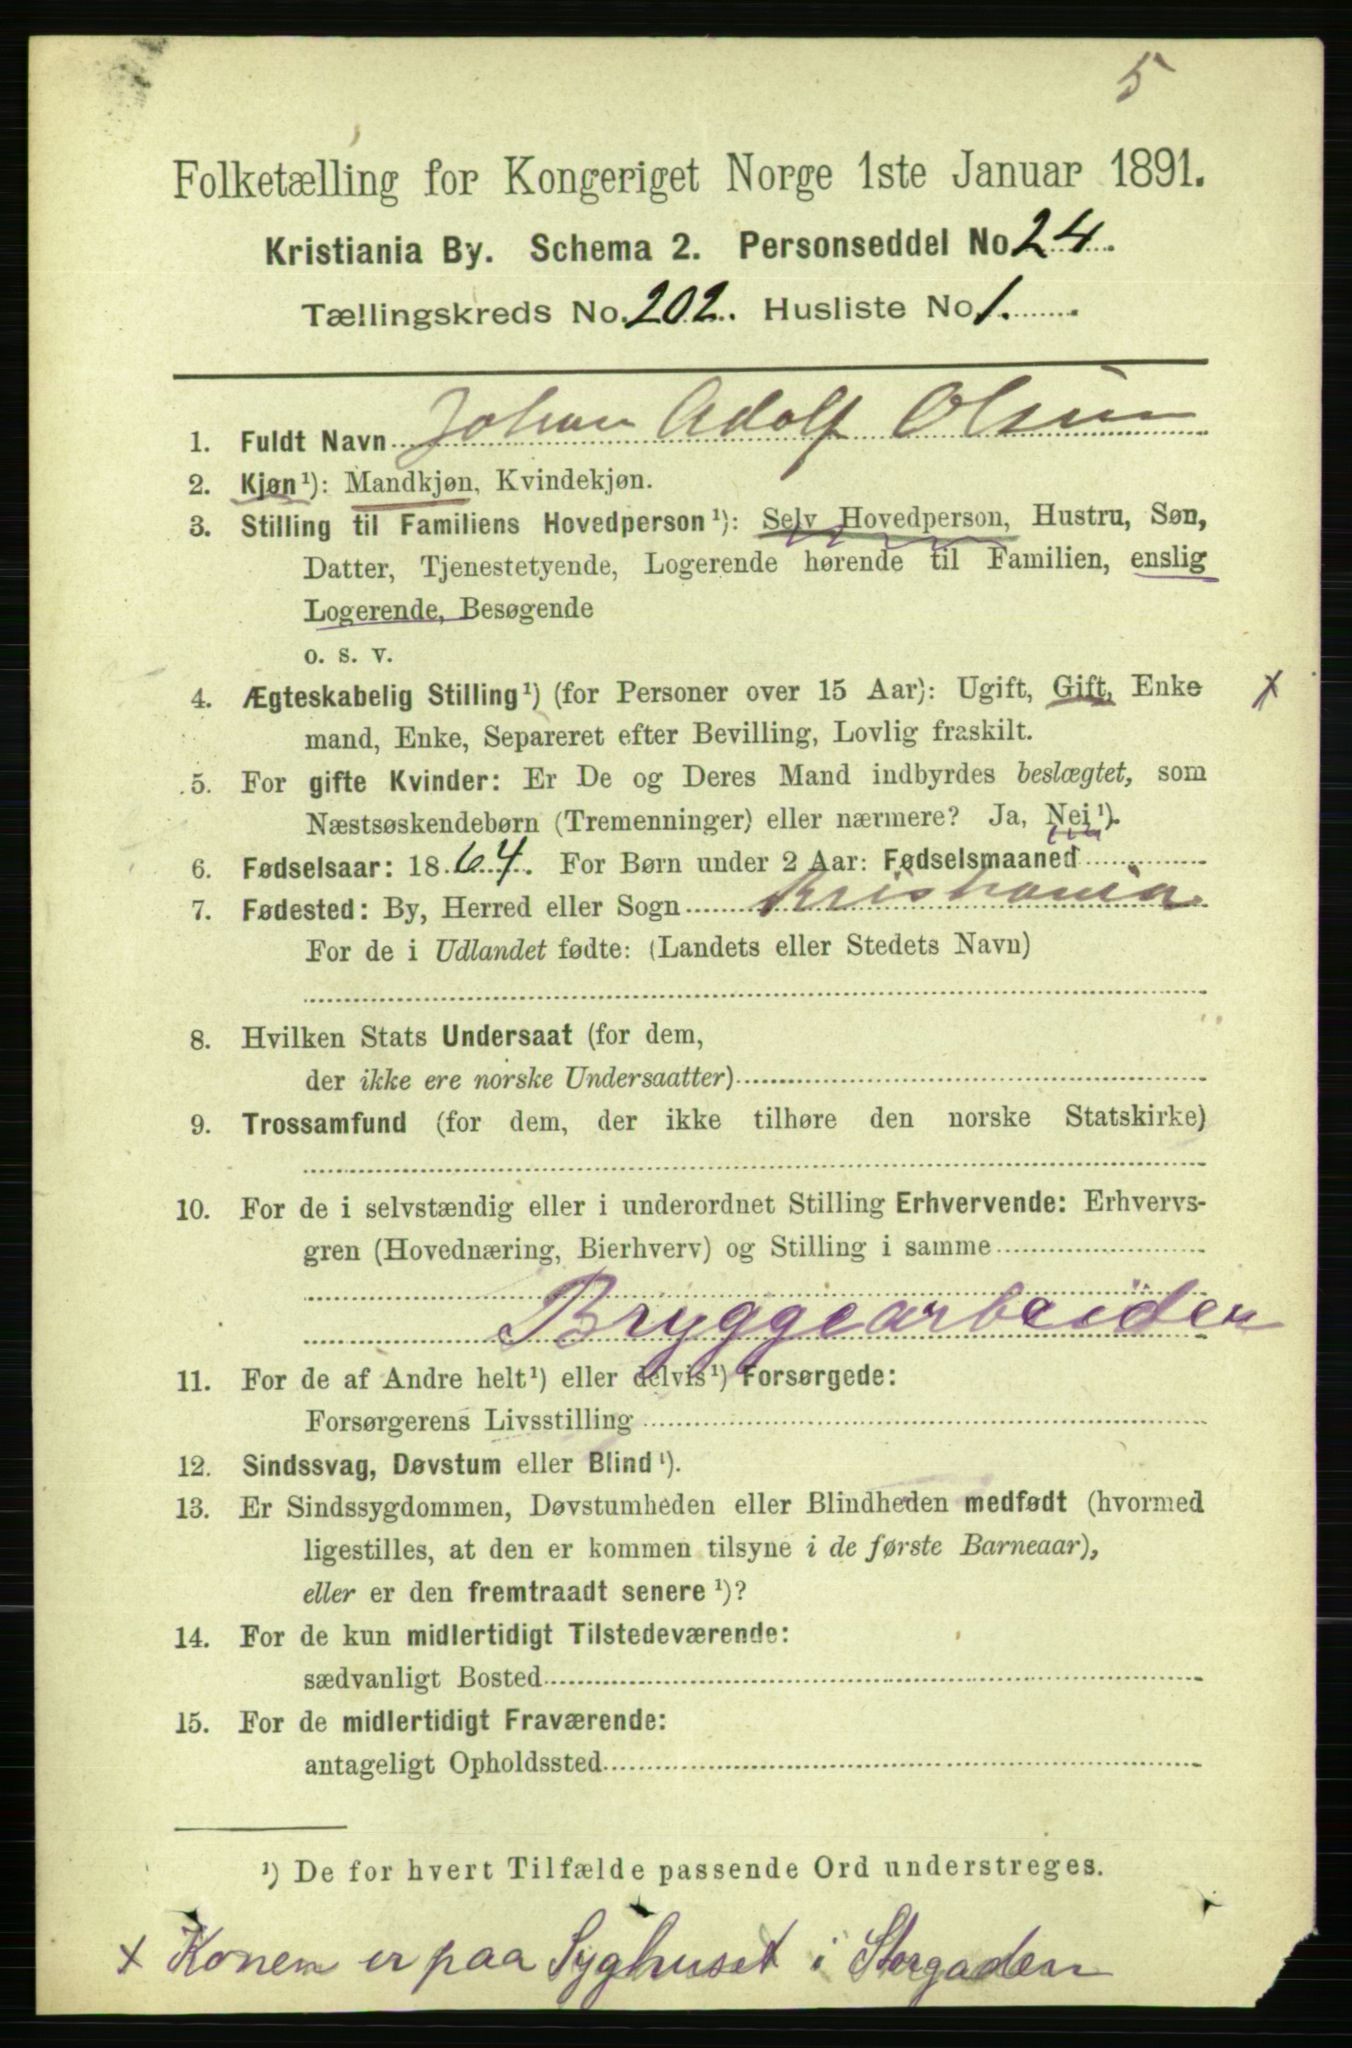 5
Folketælling for Kongeriget Norge 1ste Januar 1891.
Kristiania By. Schema 2. Personseddel No 24
Tællingskreds No. 202. Husliste No 1.
1. Fuldt Navn Johan Adolf Olsen
2. Kjøn¹): Mandkjøn, Kvindekjøn.
3. Stilling til Familiens Hovedperson¹): Selv Hovedperson, Hustru, Søn,
Datter, Tjenestetyende, Logerende hørende til Familien, enslig
Logerende, Besøgende
o. s. v.
4. Ægteskabelig Stilling¹) (for Personer over 15 Aar): Ugift, Gift, Enke x
mand, Enke, Separeret efter Bevilling, Lovlig fraskilt.
5. For gifte Kvinder: Er De og Deres Mand indbyrdes beslægtet, som
Næstsøskendebørn (Tremenninger) eller nærmere? Ja, Nei¹).
6. Fødselsaar: 1864. For Børn under 2 Aar: Fødselsmaaned
7. Fødested: By, Herred eller Sogn Kristiania
For de i Udlandet fødte: (Landets eller Stedets Navn)
8. Hvilken Stats Undersaat (for dem,
der ikke ere norske Undersaatter)
9. Trossamfund (for dem, der ikke tilhøre den norske Statskirke)
10. For de i selvstændig eller i underordnet Stilling Erhvervende: Erhvervs-
gren (Hovednæring, Bierhverv) og Stilling i samme
Bryggearbeider
11. For de af Andre helt¹) eller delvis¹) Forsørgede:
Forsørgerens Livsstilling
12. Sindssvag, Døvstum eller Blind¹).
13. Er Sindssygdommen, Døvstumheden eller Blindheden medfødt (hvormed
ligestilles, at den er kommen tilsyne i de første Barneaar),
eller er den fremtraadt senere¹)?
14. For de kun midlertidigt Tilstedeværende:
sædvanligt Bosted
15. For de midlertidigt Fraværende:
antageligt Opholdssted
¹) De for hvert Tilfælde passende Ord understreges.
x Konen er paa Syghuset i Storgaden